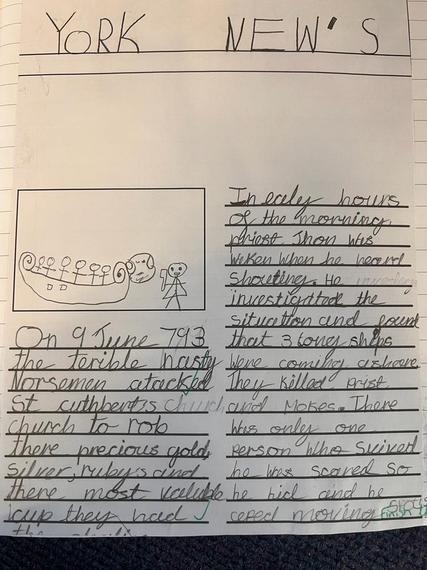 YORK NEW'S
On 9 June 793
the terible nasty
Norseman atacked
St cuthbert's church
church to rob
there precious gold,
silver, ruby's and
there most valuble
cup they had
In ealy hours
of the morning,
priest Jhon was
woken when he heard
shouting. He
investigatted the
situation and found
that 3 long ships
were coming ashore.
They killed prist
and Mokes. There
was only one
person who suivert
he was scared so
he hid and he
ceped moving